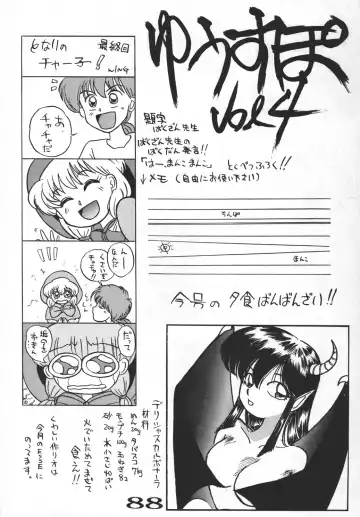 となりの
チャー子!
最終回
WING
あ
チャチャだ
んー
なんだ
くさいぞ
チャチャ!!
だって
塩谷さん
ゆうすぽ
Vol4
題字
ばくざん先生
ばくざん先生の
ばくだん発言!!
「はー、まんこまんこ」
とくべつふろく!!
↓メモ (自由にお使い下さい)
ちんぽ
まんこ
今号の夕食ばんばんざい!!
デリシャスカルボナーラ
材料
めん20g タバスコ 7滴
モンプチ100g 玉ねぎ82
砂20g 水小さじ1ぱい
火でいためてまぜて
食え!!
くわしい作り方は
今月のESSEに
のってます。
88